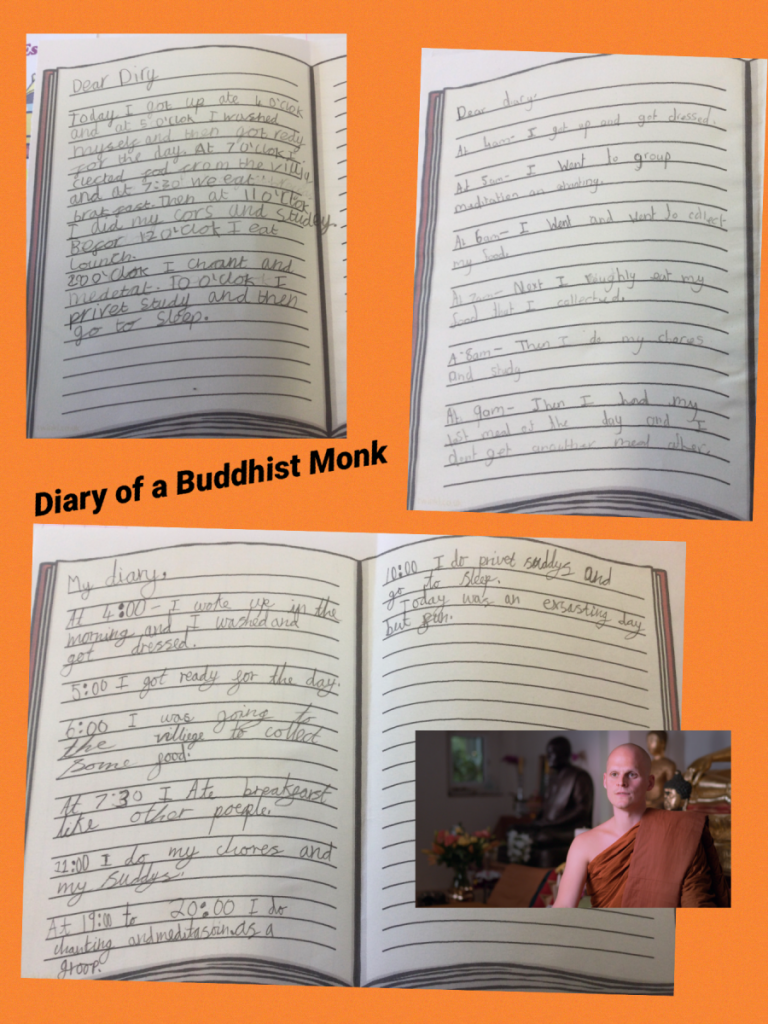 Dear Diry
Today I got up ate 4 o'clok
and at 5 o'clok I washed
myself and then got redy
for the day. At 7 o'clok I
clected fod from the villja
and at 7:30 we eat
brakfast. Then at 11 o'clok
I did my cors and studey.
Befor 12 o'clok I eat
Lounch.
200'clok I chant and
medetat. 10 o'clok I
privet study and then
go to sleep.
Dear diary.
At 4am- I get up and got dressed.
At 5am- I Went to group
meditation
At 6am- I Went and went to collect
my food.
At 7am- Next I roughly eat my
food that I collected.
At 8am- Then I do my chores
and study
At 9am- Then I hand my
last meal of the day and I
dont get annother meal
Diary of a Buddhist Monk
My diary.
At 4:00 - I woke up in the
morning and I washed and
got dressed.
5:00 I got ready for the day.
6:00 I was going to
the village to collect
some food.
At 7:30 I Ate breakfarst
like other poeple.
11:00 I do my chores and
my suddys.
At 19:00 to 20:00 I do
chanting and as a
groop.
10:00 I do privet suddys and
go to sleep.
Today was an exsasting day
but